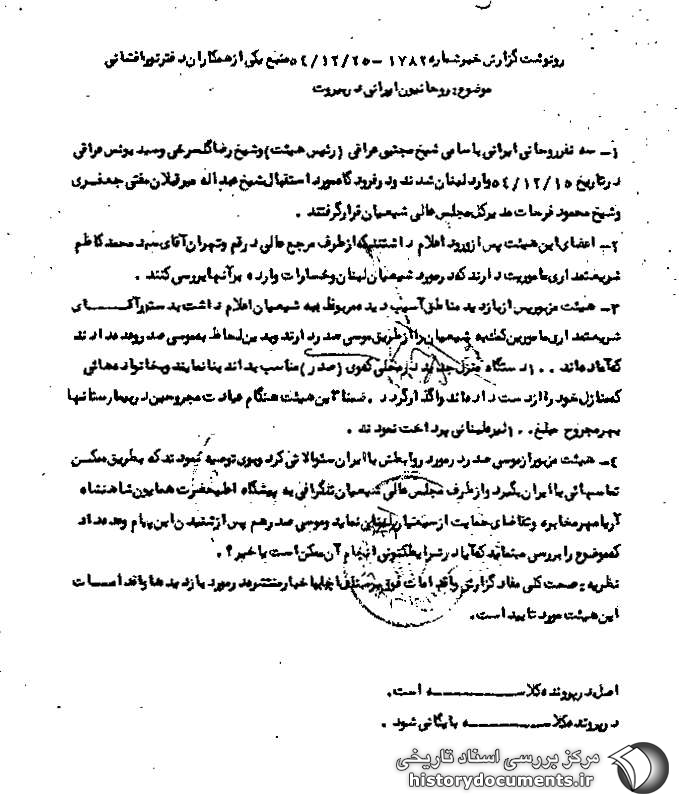 رونوشت گزارش خبر شماره ۱۷۸۲ - ۵۴/۱۲/۲۵ منبع یکی از همکاران دفتر نورافشانی
موضوع: روحانیون ایرانی در بیروت
۱- سه نفر روحانی ایرانی باسامی شیخ مجتبی عراقی (رئیس هیئت) و شیخ رضا گلسرخی و سید یونس عراقی
در تاریخ ۵۴/۱۲/۱۵ وارد لبنان شدند و در فرودگاه مورد استقبال شیخ عبداله میرقبلان مفتی جعفری
و شیخ محمود فرحات مدیر کل مجلس عالی شیعیان قرار گرفتند .
۲- اعضای این هیئت پس از ورود اعلام داشتند که از طرف مرجع عالی در قم و تهران آقای سید محمد کاظم
شریعتمداری ماموریت دارند که در مورد شیعیان لبنان و خسارات وارده بر آنها بررسی کنند .
۳- هیئت مزبور پس از بازدید مناطق آسیب دیده مربوط به شیعیان اعلام داشت بدستور آقـــــای
شریعتمداری مامورین کمک به شیعیان را از طریق موسی صدر دارند و بدین لحاظ به موسی صدر وعده دادند
که آماده‌اند ۱۰۰ دستگاه منزل جدید در محلی که وی (صدر) مناسب بداند بنا نمایند و بخانواده‌هائی
که منازل خود را از دست داده‌اند واگذار گردد . ضمناً این هیئت هنگام عیادت مجروحین در بیمارستانها
بهر مجروح مبلغ ۱۰۰ لیره لبنانی پرداخت نمودند .
۴- هیئت مزبور از موسی صدر در مورد روابطش با ایران سئوالاتی کرد و بوی توصیه نمودند که بطریق ممکن
تماسهائی با ایران بگیرد و از طرف مجلس عالی شیعیان تلگرافی به پیشگاه اعلیحضرت همایون شاهنشاه
آریامهر مخابره و تقاضای حمایت از شیعیان لبنان نماید و موسی صدر هم پس از شنیدن این پیام وعده داد
که موضوع را بررسی مینماید که آیا در شرایط کنونی انجام آن ممکن است یا خیر ؟ .
نظریه : صحت کلی مفاد گزارش و اقدامات فوق اخبار منتشره در مورد بازدیدها و اقدامـــات
این هیئت مورد تایید است .
اصل در پرونده کلاســـــــــه است.
در پرونده کلاســـــــــه بایگانی شود .
مرکز بررسی اسناد تاریخی
historydocuments.ir